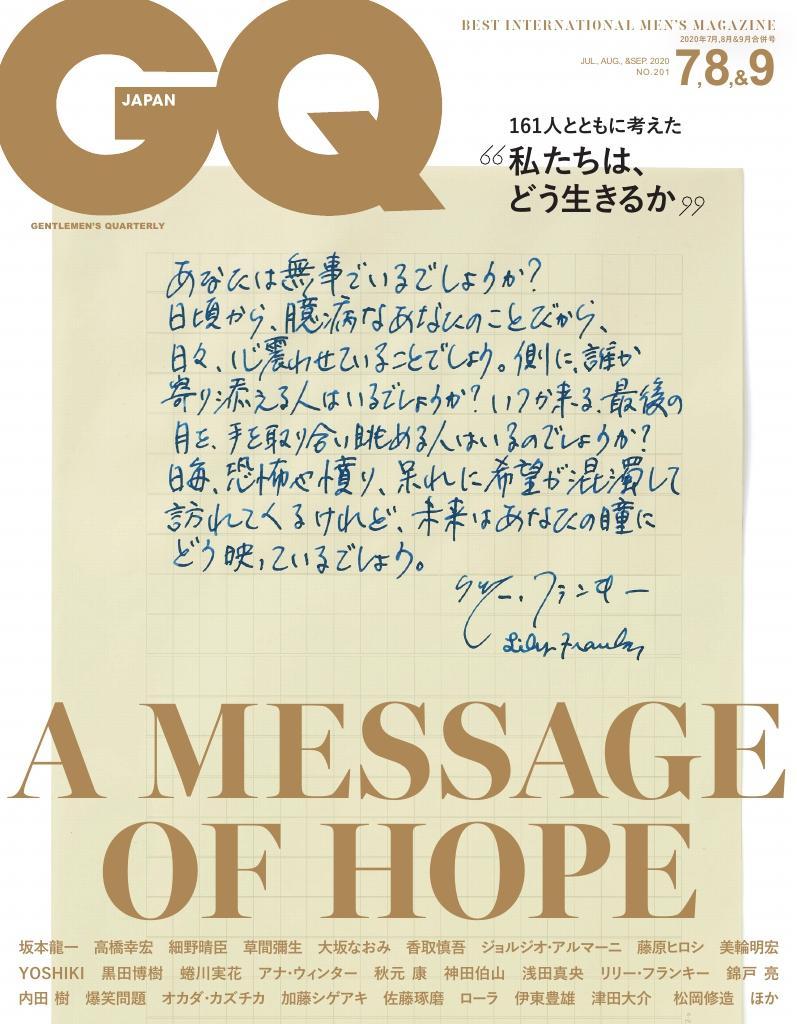 GQ
JAPAN
GENTLEMEN'S QUARTERLY
BEST INTERNATIONAL MEN'S MAGAZINE
2020年7月,8月&9月合併号
JUL., AUG., &SEP. 2020
NO.201
7,8,&9
161人とともに考えた
“私たちは、
どう生きるか”
あなたは無事でいるでしょうか?
日頃から、臆病なあなたのことだから、
日々、心震わせていることでしょう。側に、誰か
寄り添える人はいるでしょうか? いつか来る、最後の
月を、手を取り合い眺める人はいるのでしょうか?
毎日、恐怖や憤り、呆れに希望が混濁して
訪れてくるけれど、未来はあなたの瞳に
どう映っているでしょう。
リリー・フランキー
Lily Franky
A MESSAGE
OF HOPE
坂本龍一 高橋幸宏 細野晴臣 草間彌生 大坂なおみ 香取慎吾 ジョルジオ・アルマーニ 藤原ヒロシ 美輪明宏
YOSHIKI 黒田博樹 蜷川実花 アナ・ウィンター 秋元 康 神田伯山 浅田真央 リリー・フランキー 錦戸 亮
内田 樹 爆笑問題 オカダ・カズチカ 加藤シゲアキ 佐藤琢磨 ローラ 伊東豊雄 津田大介 松岡修造 ほか